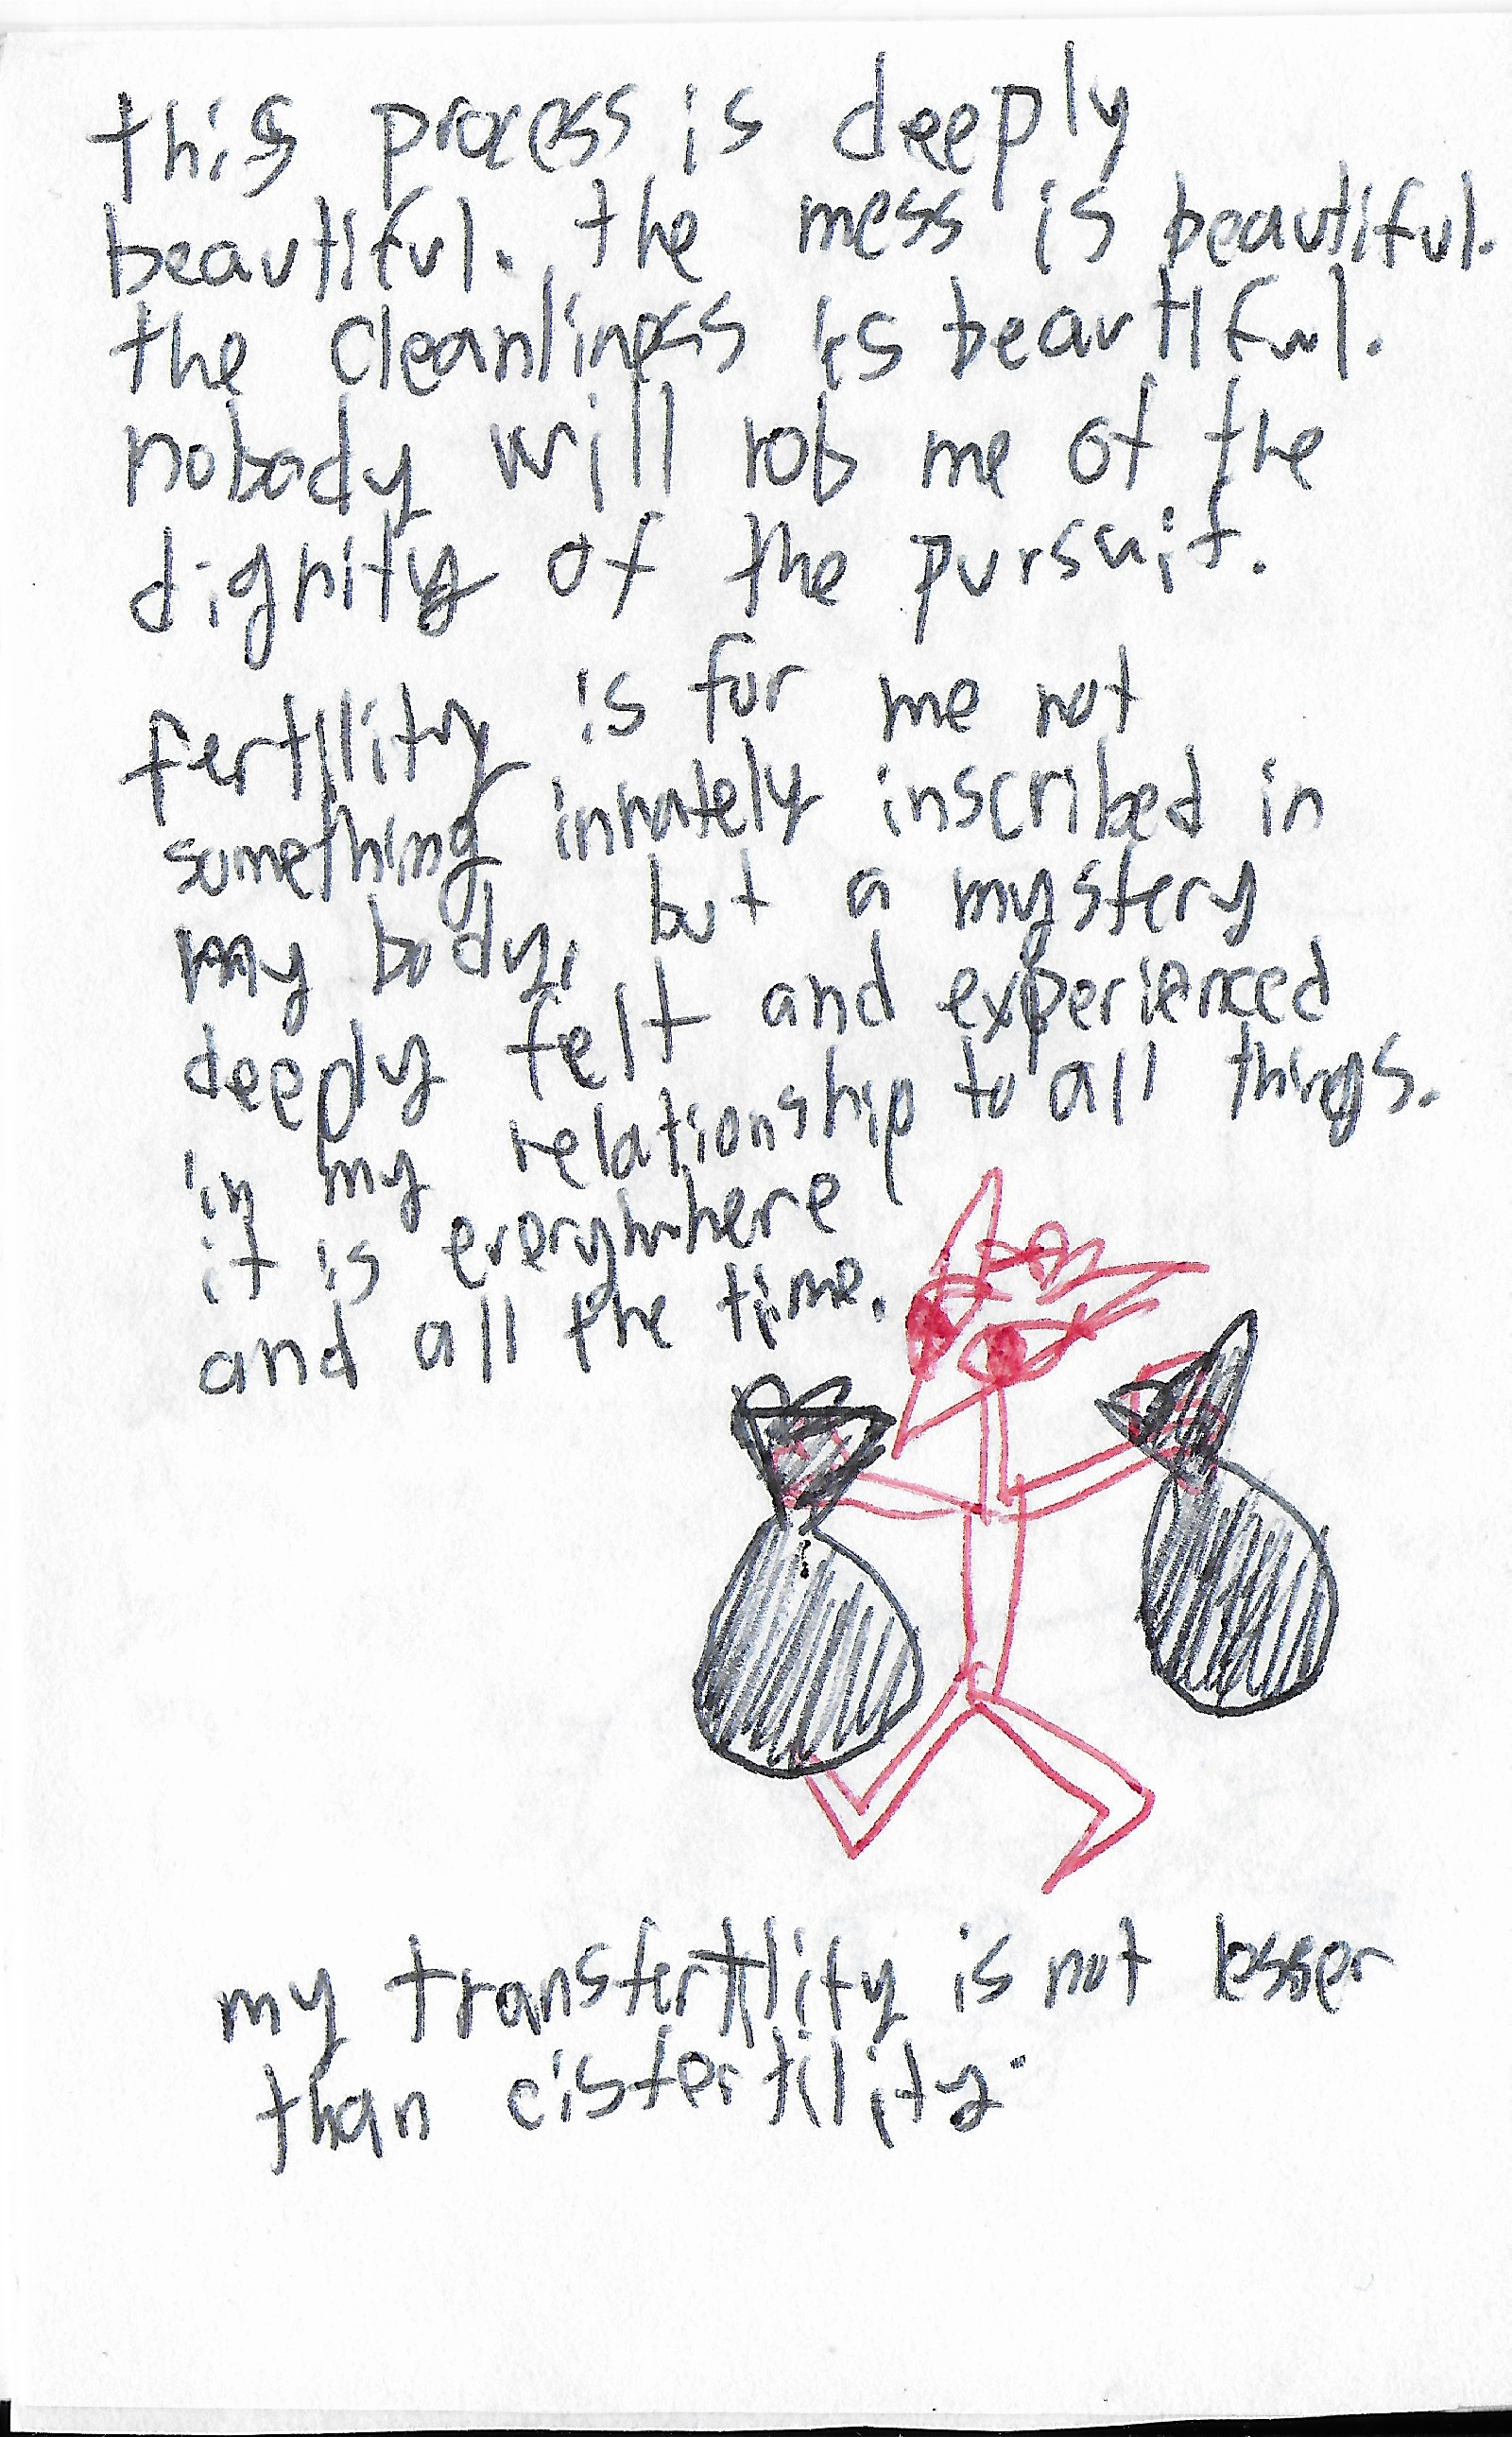 this process is deeply
beautiful. the mess is beautiful.
the cleanliness is beautiful.
nobody will rob me of the
dignity of the pursuit.
fertility is for me not
something innately inscribed in
my body, but a mystery
deeply felt and experienced
in my relationship to all things.
it is everywhere
and all the time.
my transfertility is not lesser
than cisfertility.